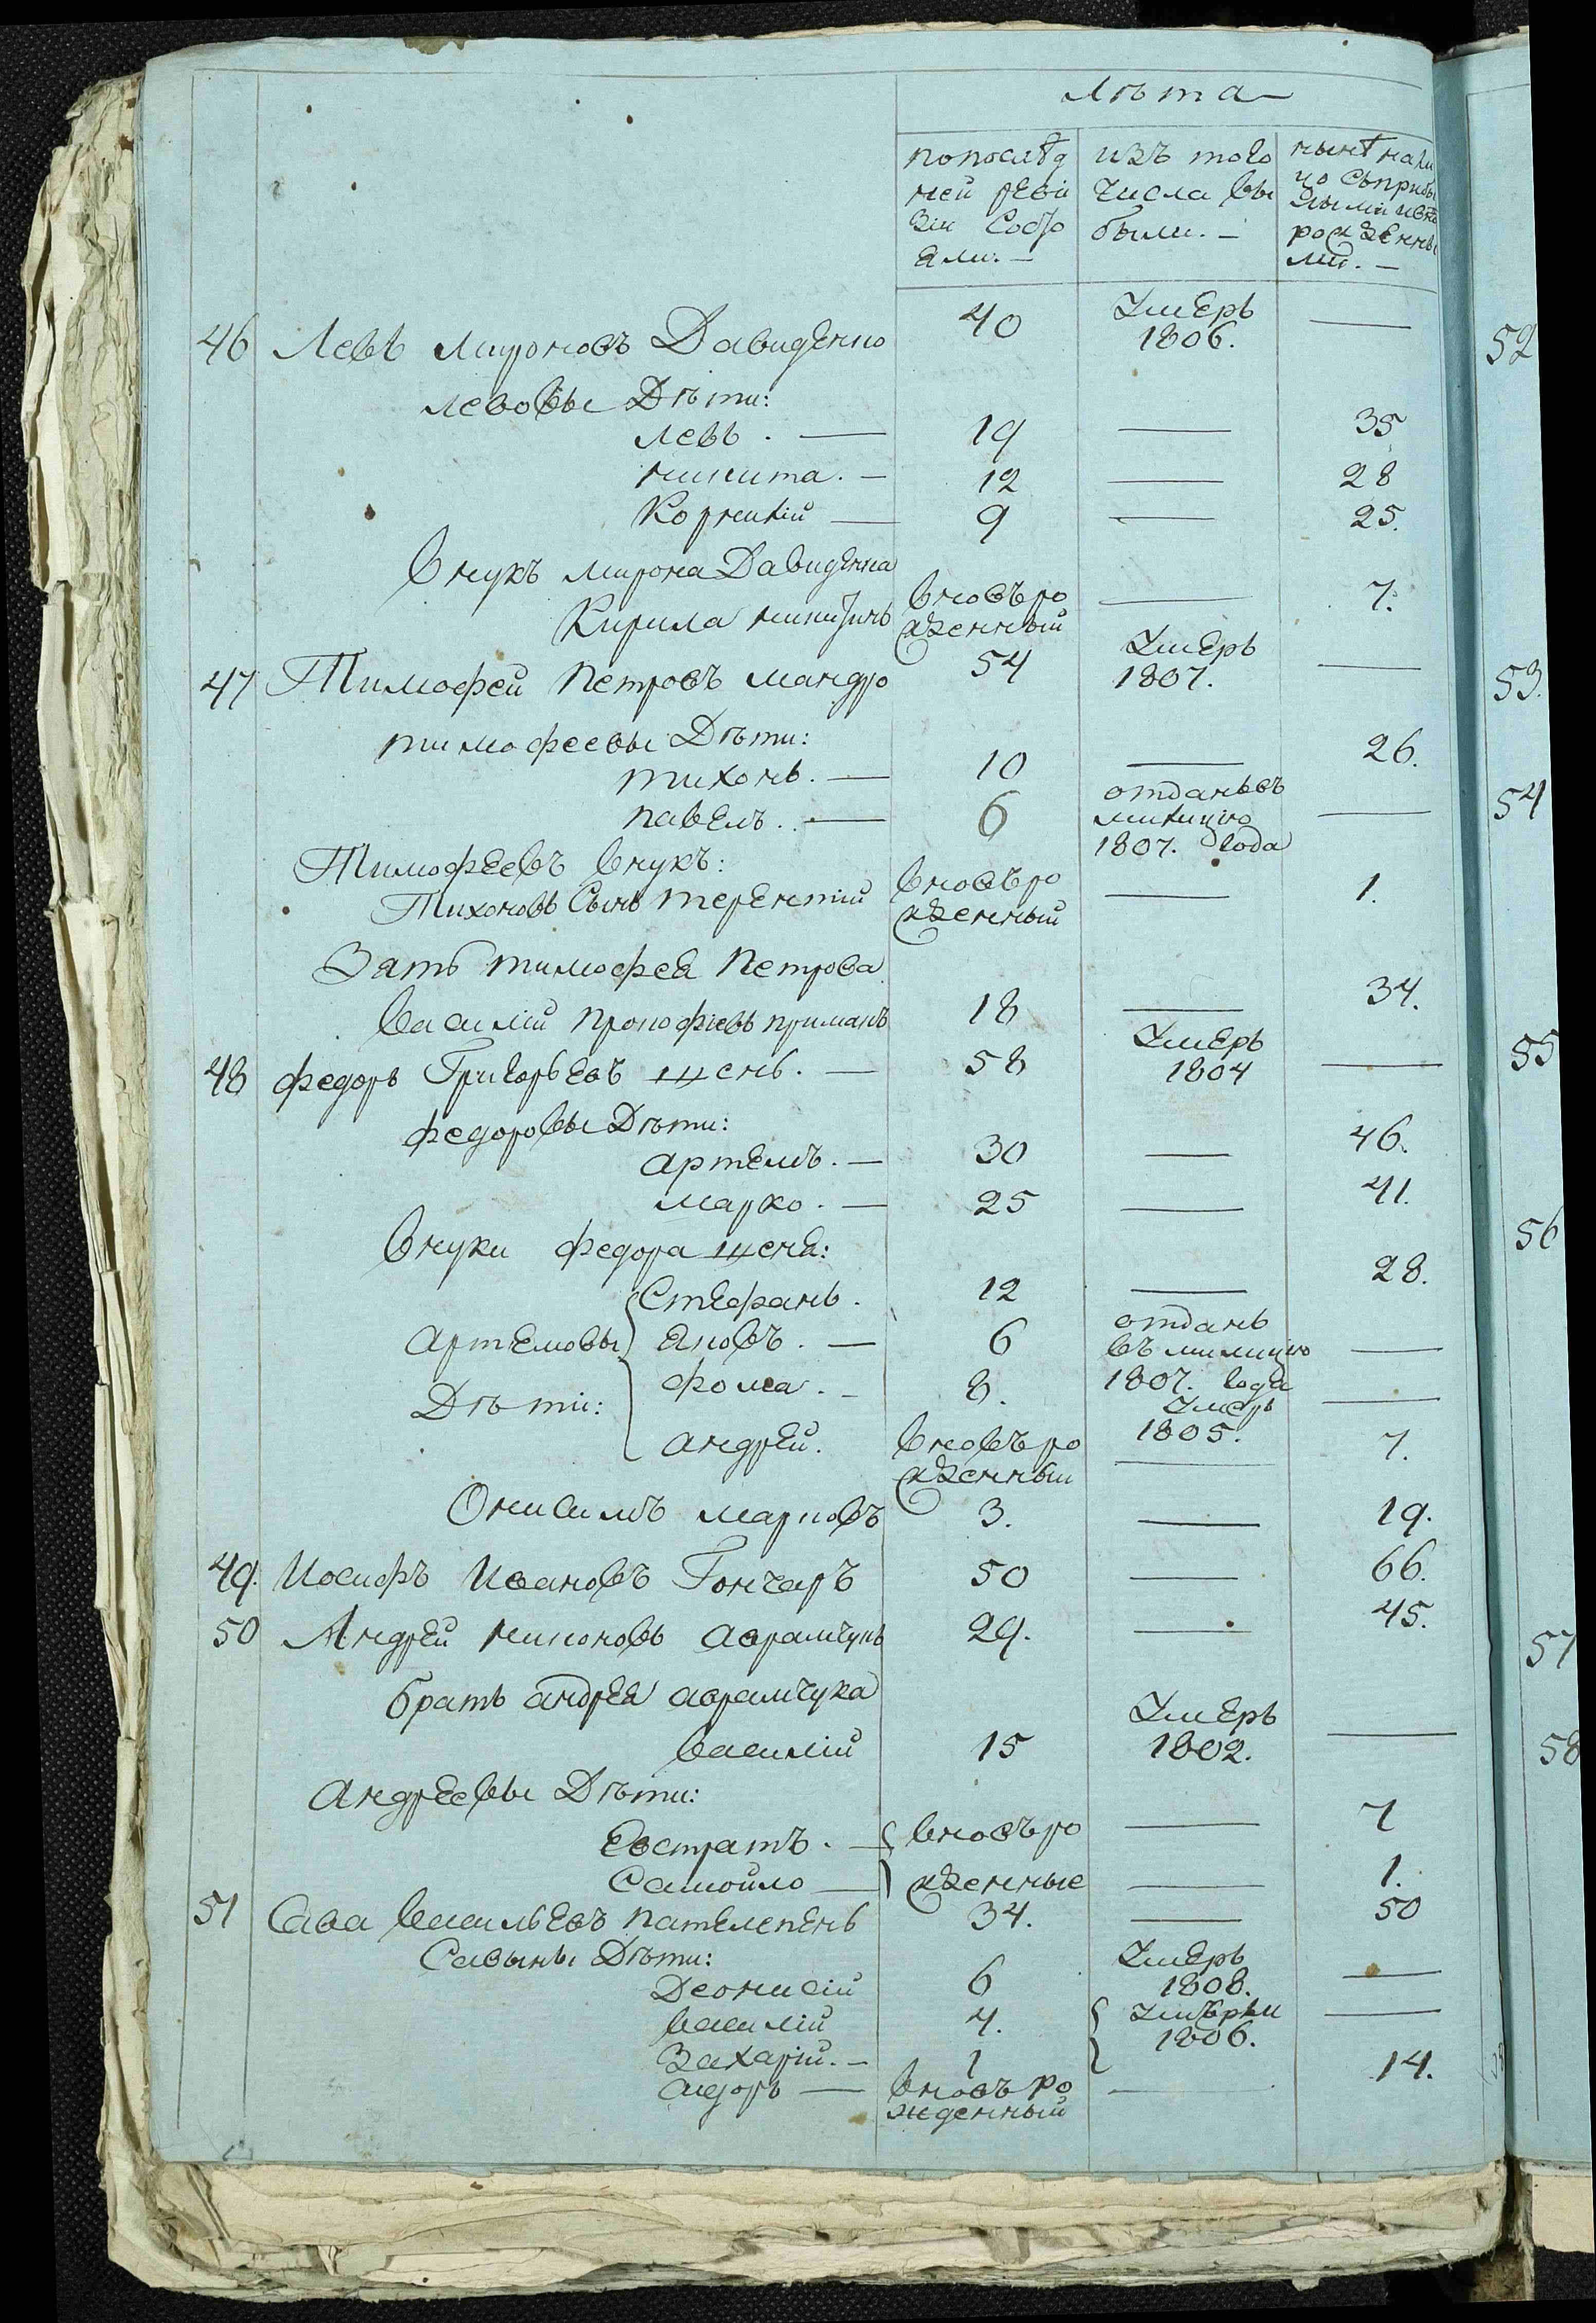 Лѣта
попослѣд
ней реви
зіи Состо
яли. —
изъ того
числа вы
были. —
нынѣ нали
цо съприбы
лыми ивно
рожденны
ми. —
46 Левъ Мироновъ Давиденко 40 Умеръ 1806. —
Левовы Дѣти:
Левъ. — 19 — 35
Никита. — 12 — 28
Корнилій — 9 — 25.
Внукъ Мирона Давиденка
Кирила Никитинъ вновьро жденный — 7.
47 Тимофей Петровъ Мандро 54 Умеръ 1807. —
Тимофеевы Дѣти:
Тихонъ. — 10 — 26.
Павелъ. — 6 отданъвъ милицію 1807. года —
Тимофеевъ Внукъ:
Тихоновъ Сынъ Терентій вновьро жденный — 1.
Зять Тимофея Петрова
Василій Прокофіевъ Примакъ 18 — 34.
48 Федоръ Григорьевъ Щень. — 58 Умеръ 1804 —
Федоровы Дѣти:
Артемъ. — 30 — 46.
Марко. — 25 — 41.
Внуки Федора Щеня:
Артемовы Дѣти:
Стефанъ. 12 — 28.
Яковъ. — 6 отданъ въ милицію 1807. года —
Фома. — 8. Умеръ 1805. —
Андрей. вновьро жденный — 7.
Онисимъ Марковъ 3. — 19.
49. Иосифъ Ивановъ Гончаръ 50 — 66.
50 Андрей Никоновъ Аврамчукъ 29. — 45.
братъ Андрея Аврамчука
Василій 15 Умеръ 1802. —
Андреевы Дѣти:
Евстратъ. — вновьро — 7
Самойло — жденные — 1.
51 Сава Васильевъ Пателепень 34. — 50
Савыны Дѣти:
Деонисій 6 Умеръ 1808. —
Василій 4. Умерли 1806. —
Захарій. — 1
Сидоръ — вновьро жденный — 14.
52
53.
54
55
56
57
58